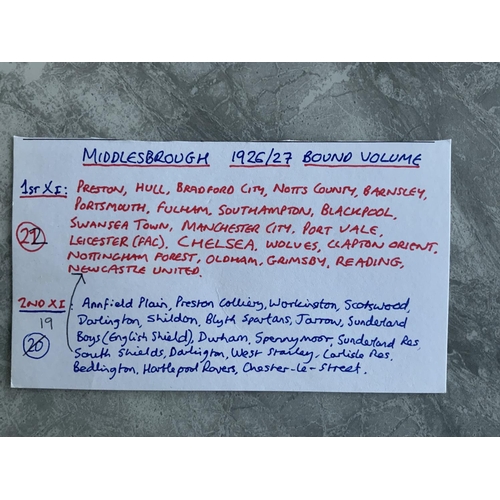 MIDDLESBROUGH 1926/27 BOUND VOLUME
1ST XI: PRESTON, HULL, BRADFORD CITY, NOTTS COUNTY, BARNSLEY,
PORTSMOUTH, FULHAM, SOUTHAMPTON, BLACKPOOL,
SWANSEA TOWN, MANCHESTER CITY, PORT VALE,
22 LEICESTER (FAC), CHELSEA, WOLVES, CLAPTON ORIENT.
NOTTINGHAM FOREST, OLDHAM, GRIMSBY, READING,
NEWCASTLE UNITED.
2ND XI: Annfield Plain, Preston Colliery, Workington, Scotswood,
19 Darlington, Shildon, Blyth Spartans, Jarrow, Sunderland
20 Boys (English Shield), Durham, Spennymoor, Sunderland Res
South Shields, Darlington, West Stanley, Carlisle Res.
Bedlington, Hartlepool Rovers, Chester-le-Street.